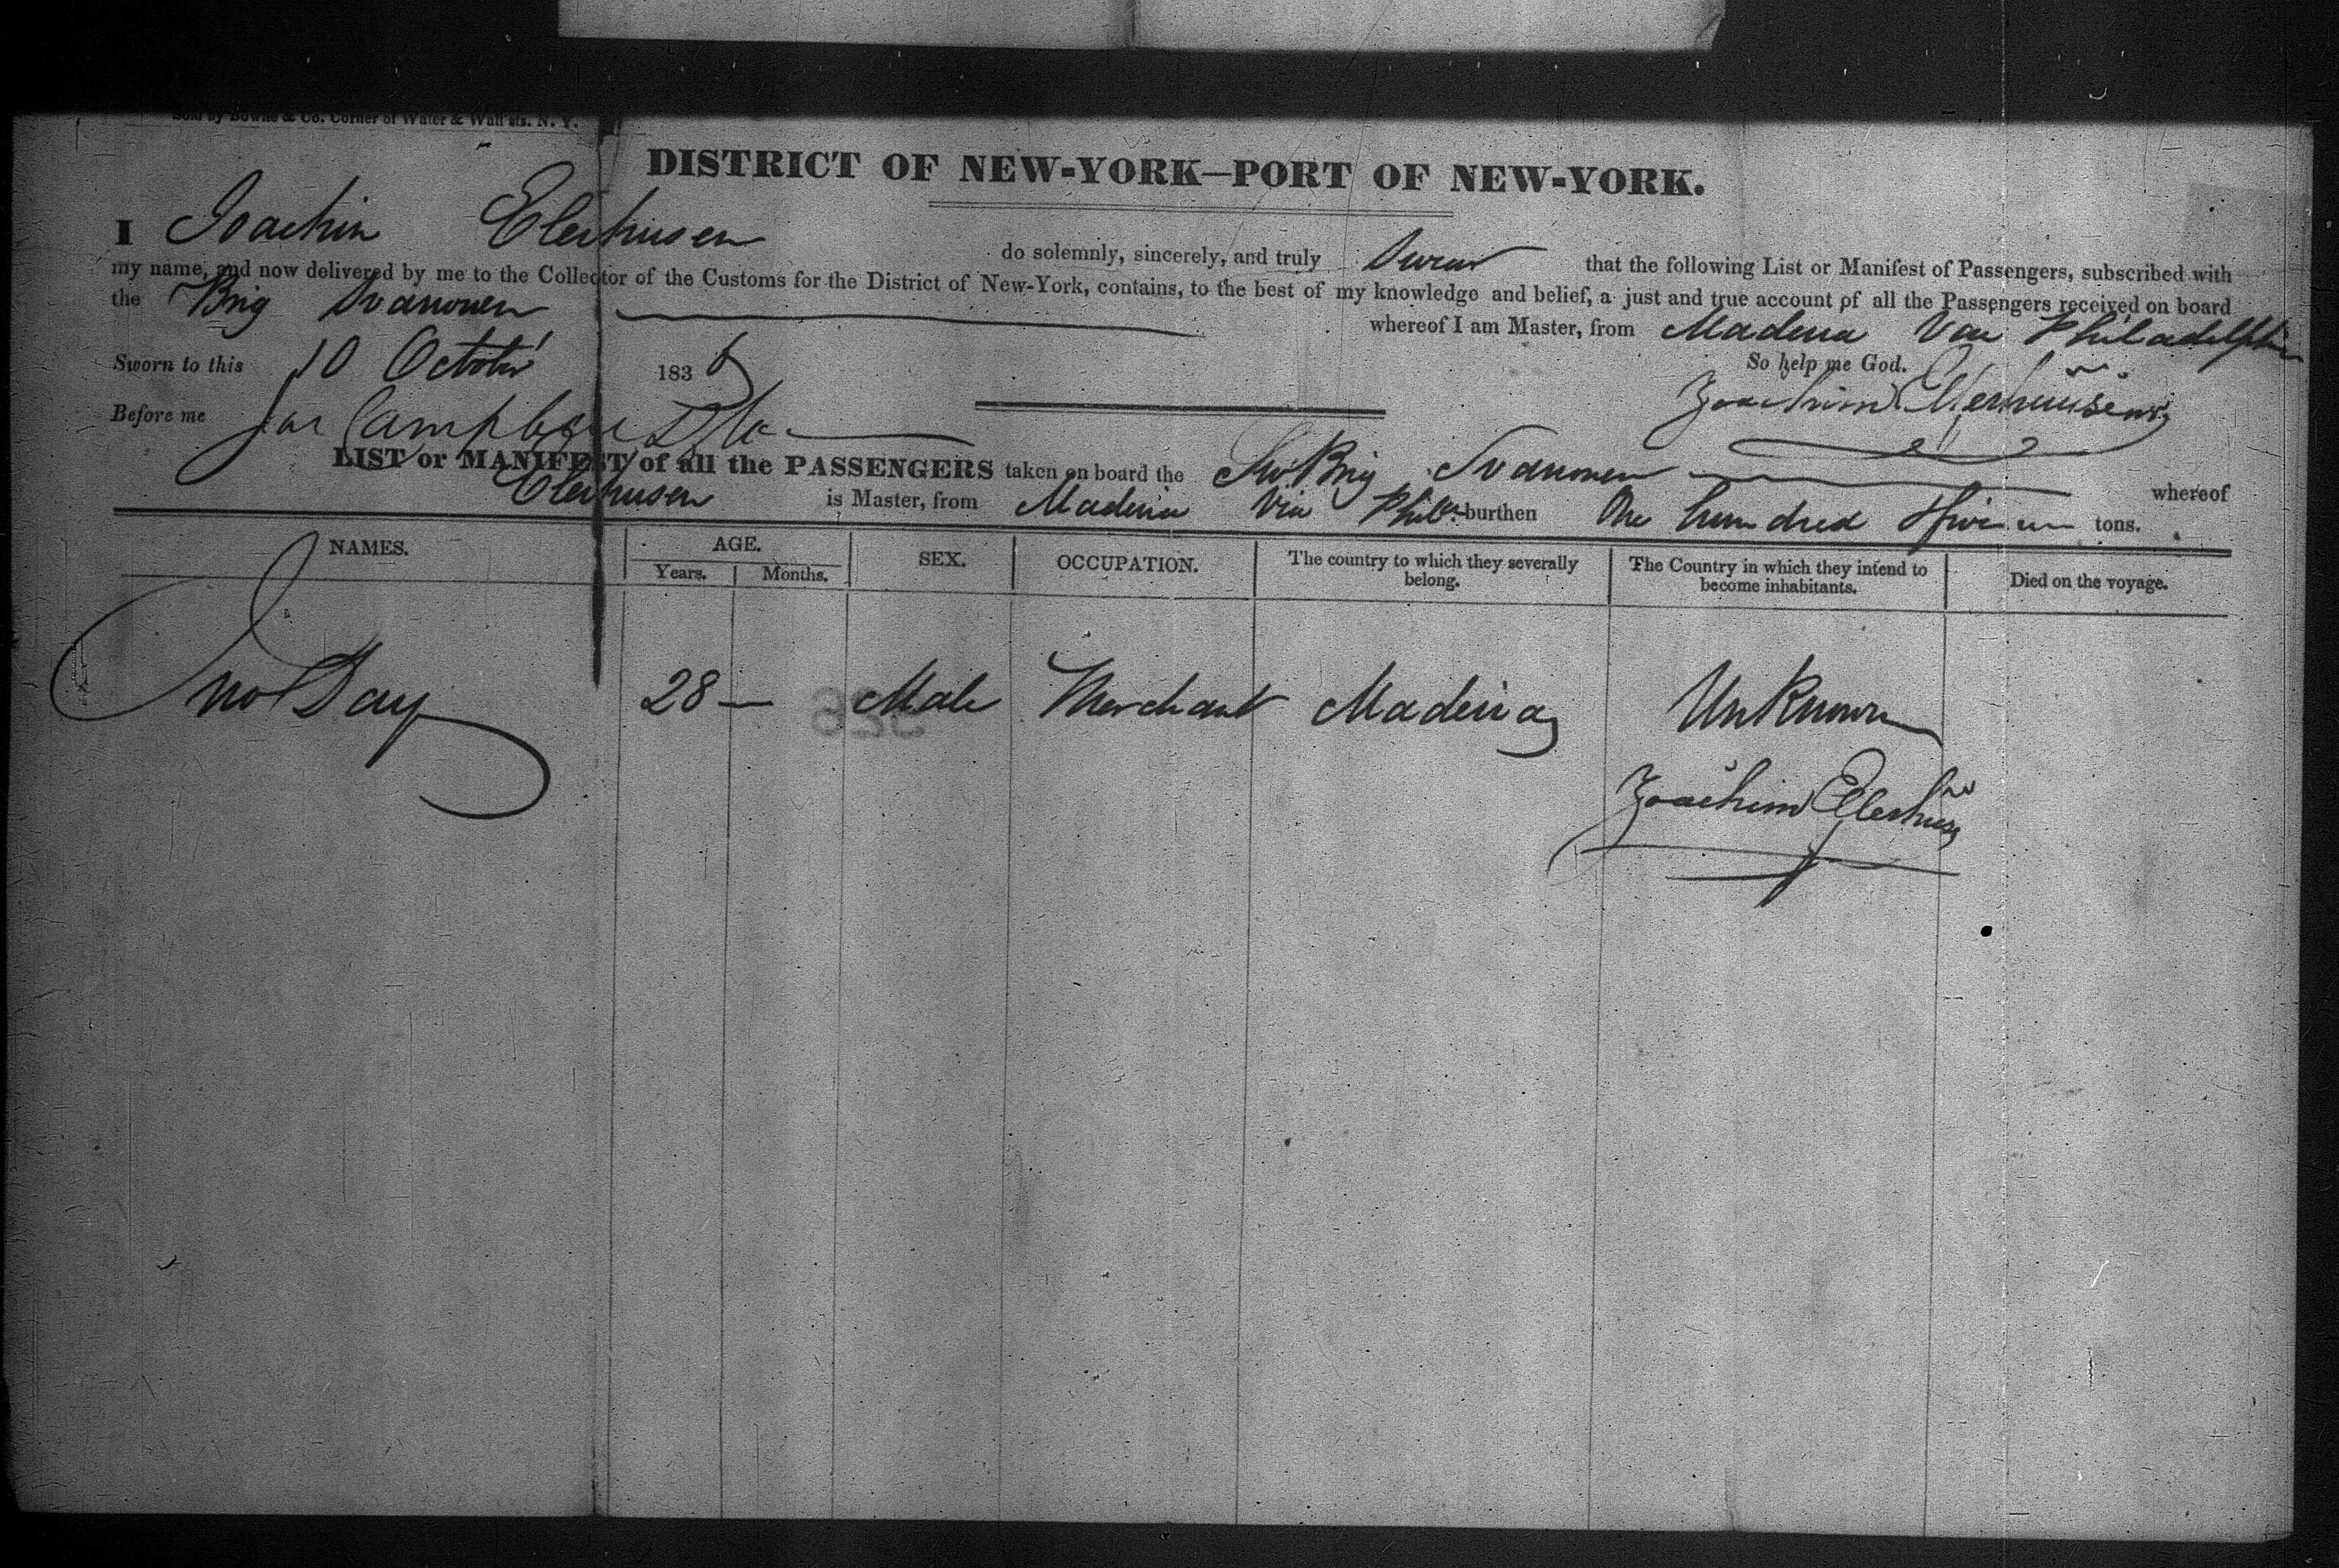 Sold by Bowne & Co. Corner of Water & Wall sts. N. Y.
DISTRICT OF NEW-YORK—PORT OF NEW-YORK.
I Joachin Elerhusen do solemnly, sincerely, and truly Swear that the following List or Manifest of Passengers, subscribed with
my name, and now delivered by me to the Collector of the Customs for the District of New-York, contains, to the best of my knowledge and belief, a just and true account of all the Passengers received on board
the Brig Svanonen whereof I am Master, from Madeira Via Philadelphia
Sworn to this 10 October 1836 So help me God.
Before me Jas Campbell Joachim Elerhusen
LIST or MANIFEST of all the PASSENGERS taken on board the Sw. Brig Svanonen whereof
Elerhusen is Master, from Madeira Via Phila burthen One hundred tons.
NAMES. AGE. SEX. OCCUPATION. The country to which they severally belong. The Country in which they intend to become inhabitants. Died on the voyage.
Years. Months.
Jno Day 28 — Male Merchant Madeira UnKnown
Joachim Elerhusen